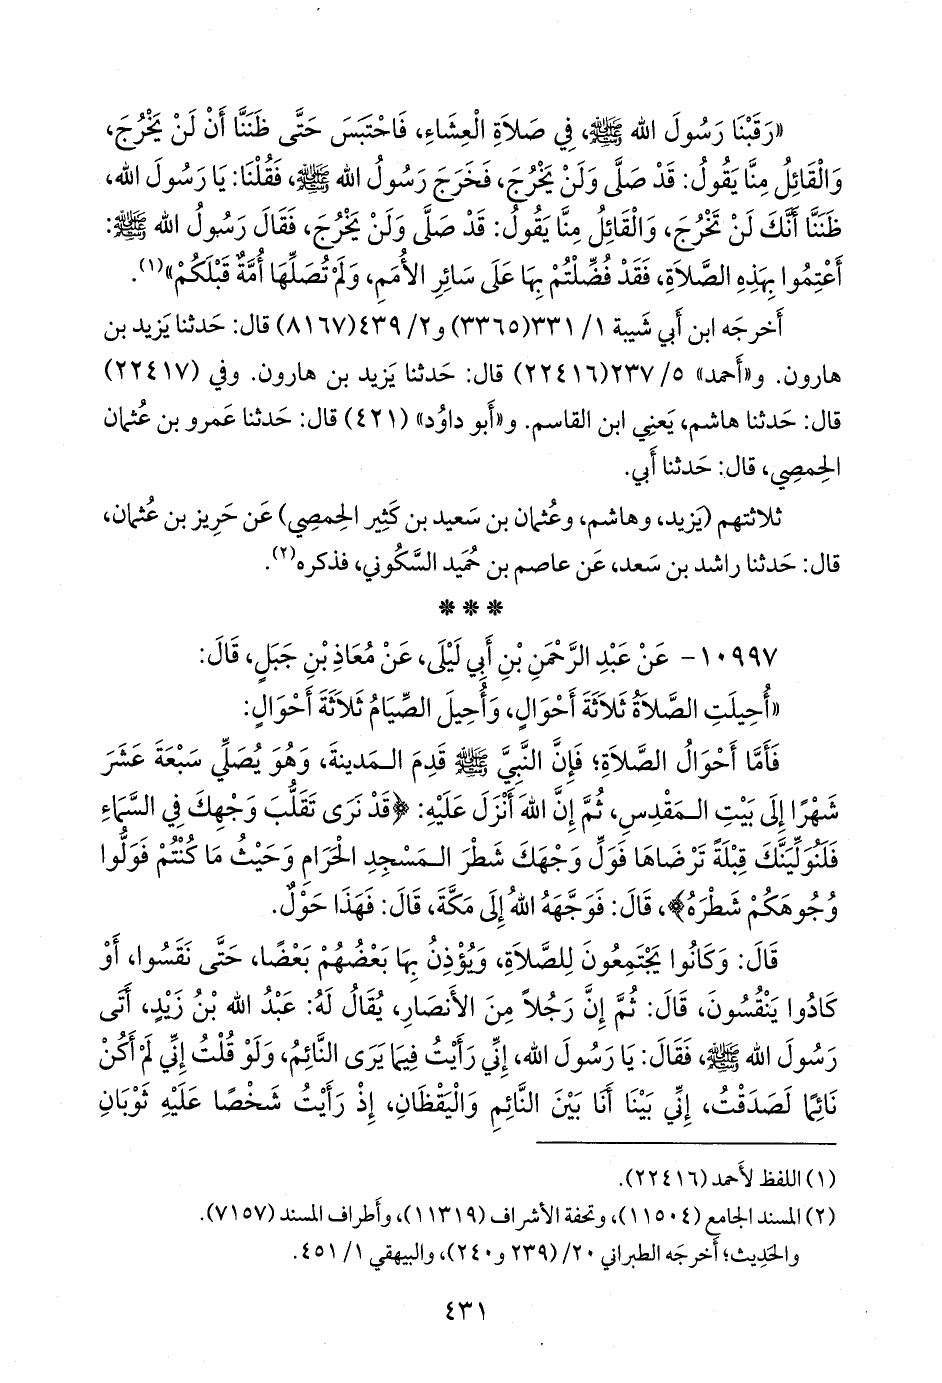 «رَقَبْنَا رَسُولَ الله ﷺ، فِي صَلاَةِ الْعِشَاءِ، فَاحْتَبَسَ حَتَّى ظَنَنَّا أَنْ لَنْ يَخْرُجَ،
وَالْقَائِلُ مِنَّا يَقُولُ: قَدْ صَلَّى وَلَنْ يَخْرُجَ، فَخَرَجَ رَسُولُ الله ﷺ، فَقُلْنَا: يَا رَسُولَ الله،
ظَنَنَّا أَنَّكَ لَنْ تَخْرُجَ، وَالْقَائِلُ مِنَّا يَقُولُ: قَدْ صَلَّى وَلَنْ يَخْرُجَ، فَقَالَ رَسُولُ الله ﷺ:
أَعْتِمُوا بِهَذِهِ الصَّلاَةِ، فَقَدْ فُضِّلْتُمْ بِهَا عَلَى سَائِرِ الأُمَمِ، وَلَمْ تُصَلِّهَا أُمَّةٌ قَبْلَكُمْ»(١).
أَخرجَه ابن أَبي شَيبة ١/ ٣٣١(٣٣٦٥) و٢/ ٤٣٩(٨١٦٧) قال: حَدثنا يَزيد بن
هارون. و«أَحمد» ٥/ ٢٣٧(٢٢٤١٦) قال: حَدثنا يَزيد بن هارون. وفي (٢٢٤١٧)
قال: حَدثنا هاشم، يَعنِي ابن القاسم. و«أَبو داوُد» (٤٢١) قال: حَدثنا عَمرو بن عُثمان
الحِمصِي، قال: حَدثنا أَبي.
ثلاثتهم (يَزيد، وهاشم، وعُثمان بن سَعيد بن كَثِير الحِمصِي) عَن حَرِيز بن عُثمان،
قال: حَدثنا راشد بن سَعد، عَن عاصم بن حُمَيد السَّكُوني، فذكره(٢).
* * *
١٠٩٩٧- عَنْ عَبْدِ الرَّحْمَنِ بْنِ أَبِي لَيْلَى، عَنْ مُعَاذِ بْنِ جَبَلٍ، قَالَ:
«أُحِيلَتِ الصَّلاَةُ ثَلاَثَةَ أَحْوَالٍ، وَأُحِيلَ الصِّيَامُ ثَلاَثَةَ أَحْوَالٍ:
فَأَمَّا أَحْوَالُ الصَّلاَةِ؛ فَإِنَّ النَّبِيَّ ﷺ قَدِمَ الـمَدينةَ، وَهُوَ يُصَلِّي سَبْعَةَ عَشَرَ
شَهْرًا إِلَى بَيْتِ الـمَقْدِسِ، ثُمَّ إِنَّ اللهَ أَنْزَلَ عَلَيْهِ: ﴿قَدْ نَرَى تَقَلُّبَ وَجْهِكَ فِي السَّمَاءِ
فَلَنُوَلِّيَنَّكَ قِبْلَةً تَرْضَاهَا فَوَلِّ وَجْهَكَ شَطْرَ الـمَسْجِدِ الحَرَامِ وَحَيْثُ مَا كُنْتُمْ فَوَلُّوا
وُجُوهَكُمْ شَطْرَهُ﴾، قَالَ: فَوَجَّهَهُ اللهُ إِلَى مَكَّةَ، قَالَ: فَهَذَا حَوْلٌ.
قَالَ: وَكَانُوا يَجْتَمِعُونَ لِلصَّلاَةِ، وَيُؤْذِنُ بِهَا بَعْضُهُمْ بَعْضًا، حَتَّى نَقَسُوا، أَوْ
كَادُوا يَنْقُسُونَ، قَالَ: ثُمَّ إِنَّ رَجُلاً مِنَ الأَنصَارِ، يُقَالُ لَهُ: عَبْدُ الله بْنُ زَيْدٍ، أَتَى
رَسُولَ الله ﷺ، فَقَالَ: يَا رَسُولَ الله، إِنِّي رَأَيْتُ فِيمَا يَرَى النَّائِمُ، وَلَوْ قُلْتُ إِنِّي لَمْ أَكُنْ
نَائِمًا لَصَدَقْتُ، إِنِّي بَيْنَا أَنَا بَيْنَ النَّائِمِ وَالْيَقْظَانِ، إِذْ رَأَيْتُ شَخْصًا عَلَيْهِ ثَوْبَانِ
(١) اللفظ لأَحمد (٢٢٤١٦).
(٢) المسند الجامع (١١٥٠٤)، وتحفة الأشراف (١١٣١٩)، وأَطراف المسند (٧١٥٧).
والحَدِيث؛ أَخرجَه الطبراني ٢٠/ (٢٣٩ و٢٤٠)، والبيهقي ١/ ٤٥١.
٤٣١